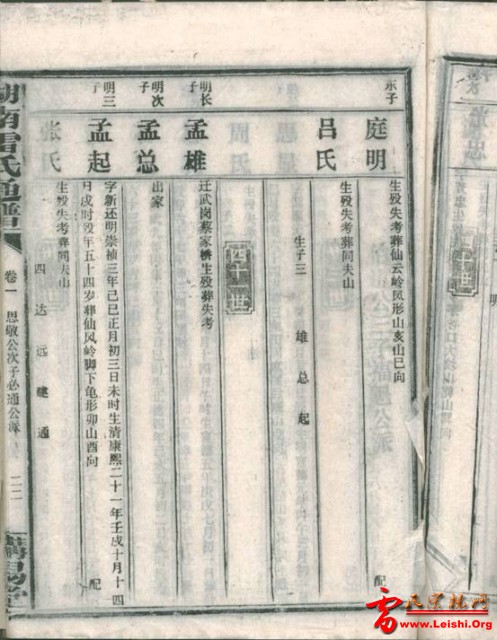 永子
庭明
生殁失考葬仙云岭凤形山亥山巳向
配
吕氏
生殁失考葬同夫山
生子三
雄 总 起
四十二世
明长子
孟雄
迁武岗蔡家桥生殁葬失考
明次子
孟总
出家
明三子
孟起
字新还明崇祯三年己巳正月初三日未时生清康熙二十一年壬戌十月十四
日戌时殁年五十四岁葬仙凤岭脚下龟形卯山酉向
配
张氏
生殁失考葬同夫山
四 达 远 通
湖南雷氏通谱
卷一
思敬公次子必通公派
二二
雷氏宗族网
www.Leishi.Org